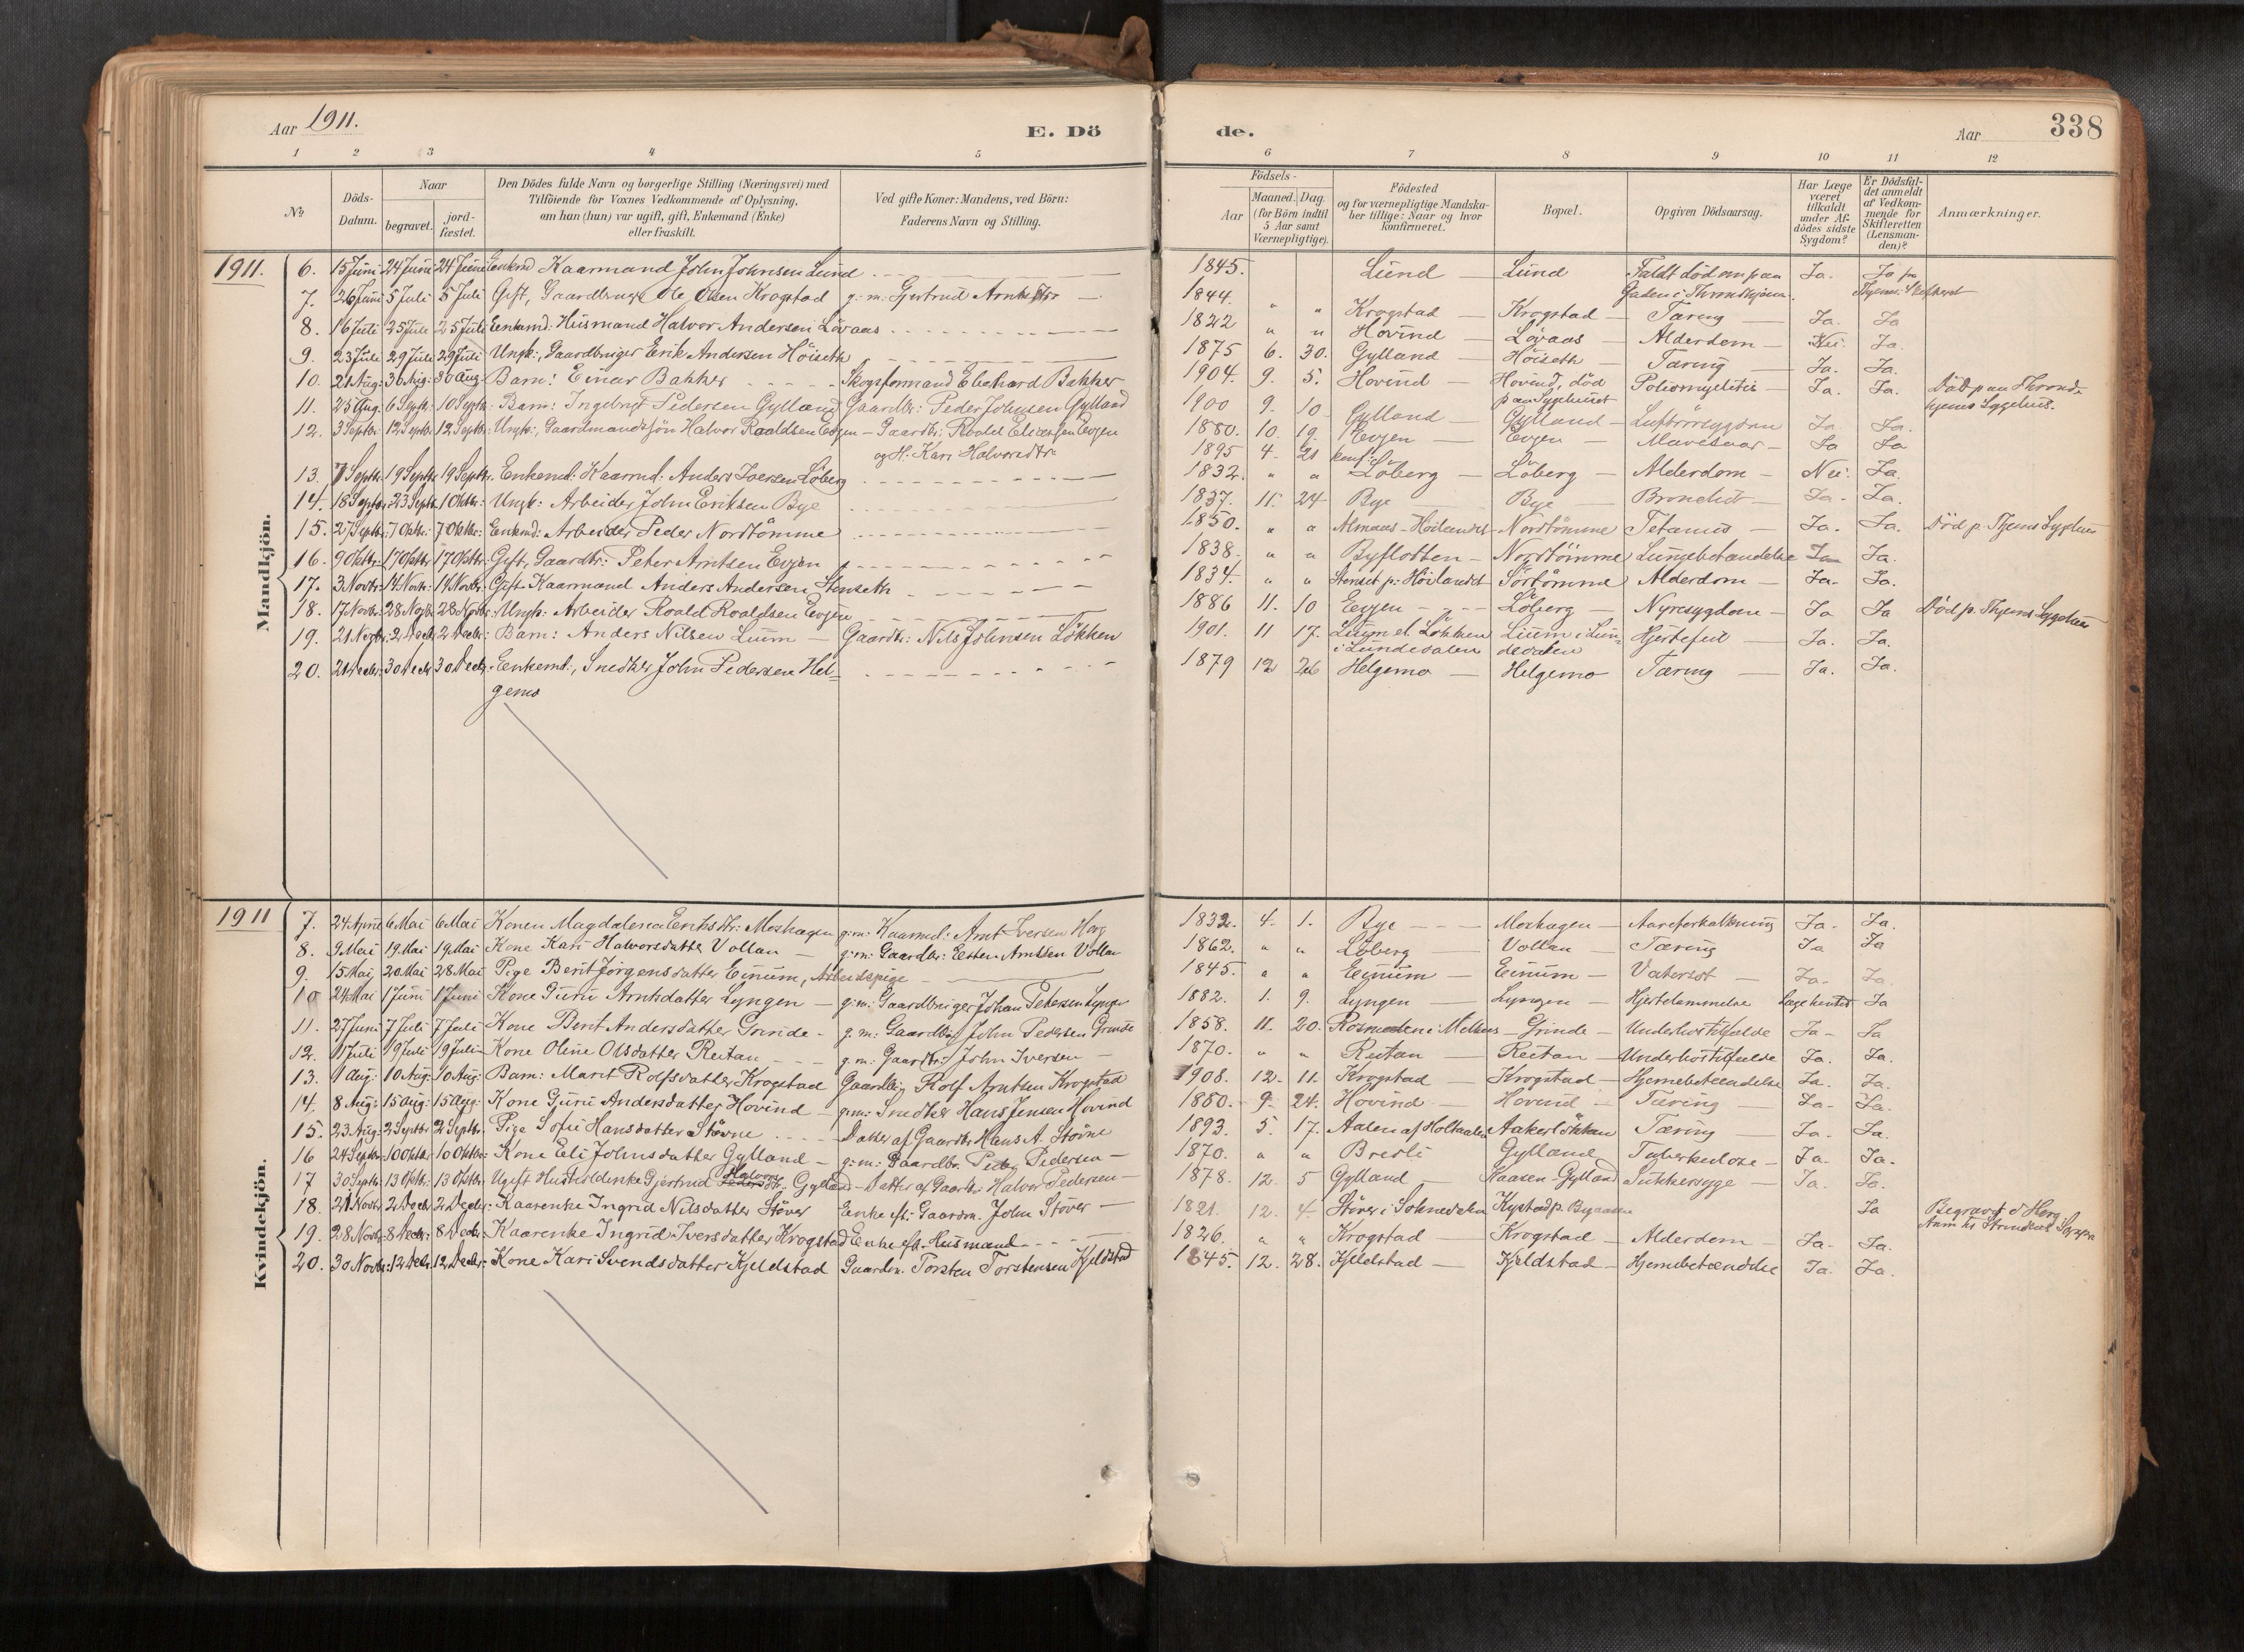 Aar 1911.
E. Dö
de.
Aar
338
1 2 3 4 5 6 7 8 9 10 11 12
№
Döds-Datum.
Naar
begravet.
jord-fæstet.
Den Dödes fulde Navn og borgerlige Stilling (Næringsvei) med
Tilföiende for Voxnes Vedkommende af Oplysning,
om han (hun) var ugift, gift, Enkemand (Enke)
eller fraskilt.
Ved gifte Koner: Mandens, ved Börn:
Faderens Navn og Stilling.
Födsels-
Aar
Maaned.
Dag.
(for Börn indtil
5 Aar samt
Værnepligtige).
Födested
og for værnepligtige Mandska-
ber tillige: Naar og hvor
konfirmeret.
Bopæl.
Opgiven Dödsaarsag.
Har Læge
været
tilkaldt
under Af-
dödes sidste
Sygdom?
Er Dödsfal-
det anmeldt
af Vedkom-
mende for
Skifteretten
(Lensman-
den)?
Anmærkninger.
Mandkjön.
1911.
6. 15 Juni 24 Juni 24 Juni Enkemd Kaarmand John Johnsen Lund 1845. Lund Lund Faldt död om paa Gaden i Throndhjem. Ja. Ja
7. 26 Juni 5 Juli 5 Juli Gift, Gaardbruger Ole Olsen Krogstad g. m. Gjertrud Arntsdtr 1844. " " Krogstad Krogstad Tæring Ja. Ja
8. 16 Juli 25 Juli 25 Juli Enkemd: Husmand Halvor Andersen Lövaas 1822 " " Hovind Lövaas Alderdom Nei. Ja.
9. 23 Juli 29 Juli 29 Juli Ungk:, Gaardbruger Erik Andersen Höiseth 1875 6. 30. Gylland Höiseth Tæring Ja. Ja.
10. 21 Aug: 30 Aug: 30 Aug: Barn: Einar Bakker Skogsformand Eberhard Bakker 1904. 9. 5. Hovind Hovind, död paa Sygehuset Poliomyelitis Ja. Ja. Död paa Thrond-
hjems Sygehus.
11. 25 Aug. 6 Septbr: 10 Septbr: Barn: Ingebrigt Pedersen Gylland Gaardbr: Peder Johnsen Gylland 1900 9. 10 Gylland Gylland Luftrörsygdom Ja Ja.
12. 3 Septbr: 12 Septbr 12 Septbr: Ungk:, Gaardmandssön Halvor Roaldsen Evjen Gaardbr: Roald Evjen
og H: Kari Halvorsdtr 1880. 10. 19. Evjen Evjen Mavesaar Ja Ja
1895 4. 21 konf:
13. 7 Septbr. 19 Septbr 19 Septbr. Enkemd: Kaarmd: Anders Iversen Löberg 1832. " " Löberg Löberg Alderdom Nei: Ja.
14. 18 Septbr. 23 Septbr. 1 Oktbr: Ungk: Arbeider John Eriksen Bye 1837. 11. 24 Bye Bye Bronchit Ja. Ja.
15. 27 Septbr. 7 Oktbr: 7 Oktbr: Enkemd: Arbeider Peder Nordtömme 1850. " " Almaas - Höilandet Nordtömme Tetanus Ja. Ja. Död p. Thjems Sygehus
16. 9 Oktbr: 17 Oktbr 17 Oktbr: Gift, Gaardbr: Peter Arntsen Evjen 1838. " " Byflotten Nordtömme Lungebetændelse Ja Ja.
17. 3 Novbr: 14 Novbr: 14 Novbr. Gift Kaarmand Anders Andersen Stenseth 1834. " " Stenset p: Höilandet Sörtömme Alderdom Ja. Ja.
18. 17 Novbr: 28 Novbr 28 Novbr. Ungk: Arbeider Roald Roaldsen Evjen 1886 11. 10 Evjen Löberg Nyresygdom Ja Ja Död p. Thjems Sygehus
19. 21 Novbr: 2 Decbr 2 Decbr: Barn: Anders Nilsen Lium Gaardbr: Nils Johnsen Lökken 1901. 11 17. Lium el. Lökken
i Lundesalen Lium i Lun-
desalen Hjertefeil Ja. Ja.
20. 21 Decbr: 30 Decbr 30 Decbr. Enkemd:, Snedker John Pedersen Hel-
gemo 1879 12 26 Helgemo Helgemo Tæring Ja. Ja.
Kvindekjön.
1911
7. 24 April 6 Mai 6 Mai Konen Magdalena Eriksdtr: Moshagen g: m: Kaarmd: Arnt Iversen Horg 1832. 4. 1. Bye Moshagen Aareforkalkning Ja. Ja.
8. 9 Mai 19 Mai 19 Mai Kone Kari Halvorsdatter Vollan g: m: Gaardbr: Esten Arntsen Vollan 1862. " " Löberg Vollan Tæring Ja Ja
9. 15 Mai 20 Mai 28 Mai Pige Berit Jörgensdatter Einum, Arbeidspige 1845. " " Einum Einum Vatersot Ja. Ja.
10 24 Mai 1 Juni 1 Juni Kone Guru Arntsdatter Lyngen g: m: Gaardbruger Johan Petersen Lyngen 1882. 1. 9. Lyngen Lyngen Hjertelammelse Læge hentet Ja
11. 27 Juni 7 Juli 7 Juli Kone Berit Andersdatter Grinde g. m: Gaardbr. John Pedersen Grinde 1858. 11. 20. Rosmoen i Melhus Grinde Underlivstilfælde Ja Ja
12. 11 Juli 19 Juli 19 Juli Kone Oline Olsdatter Reitan g. m: Gaardbr: John Iversen 1870. " " Reitan Reitan Underlivstilfælde Ja. Ja.
13. 1 Aug: 10 Aug: 10 Aug: Barn: Marit Rolfsdatter Krogstad Gaardbr: Rolf Arntsen Krogstad 1908. 12. 11. Krogstad Krogstad Hjernebetændelse Ja. Ja.
14. 8 Aug: 15 Aug: 15 Aug: Kone Guru Andersdatter Hovind g: m: Snedker Hans Jensen Hovind 1880. 9. 24. Hovind Hovind Tæring Ja. Ja.
15. 23 Aug: 2 Septbr: 2 Septbr. Pige Sofie Hansdatter Stövne Datter af Gaardbr Hans A. Stövne 1893. 5. 17. Aalen af Holtaalen Aakerlökken Tæring Ja. Ja.
16 24 Septbr 10 Oktbr 10 Oktbr: Kone Eli Johnsdatter Gylland g: m: Gaardbr. Peder Pedersen 1870. " " Bredli Gylland Tuberkulose Ja. Ja.
17 30 Septbr 13 Oktbr: 13 Oktbr. Ugift Husholderske Gjertrud Halvorsdtr: Gylland Datter af Gaardbr: Halvor Pedersen 1878. 12. 5 Gylland Haasen-Gylland Sukkersyge Ja. Ja.
18. 21 Novbr 2 Decbr 2 Decbr: Kaarenke Ingrid Nilsdatter Stöver Enke eft: Gaardm. John Stöver 1821. 12. 4 Stöver i Soknedalen Kystad p. Byaasen Ja Begravet i Horg
19. 28 Novbr. 8 Decbr: 8 Decbr. Kaarenke Ingrid Iversdatter Krogstad Enke eft. Husmand 1826. " " Krogstad Krogstad Alderdom Ja. Ja.
20. 30 Novbr: 12 Decbr. 12 Decbr: Kone Kari Svendsdatter Kjeldstad Gaardm. Torsten Torstensen Kjeldstad 1845. 12. 28. Kjeldstad Kjeldstad Hjernebetændelse Ja. Ja.